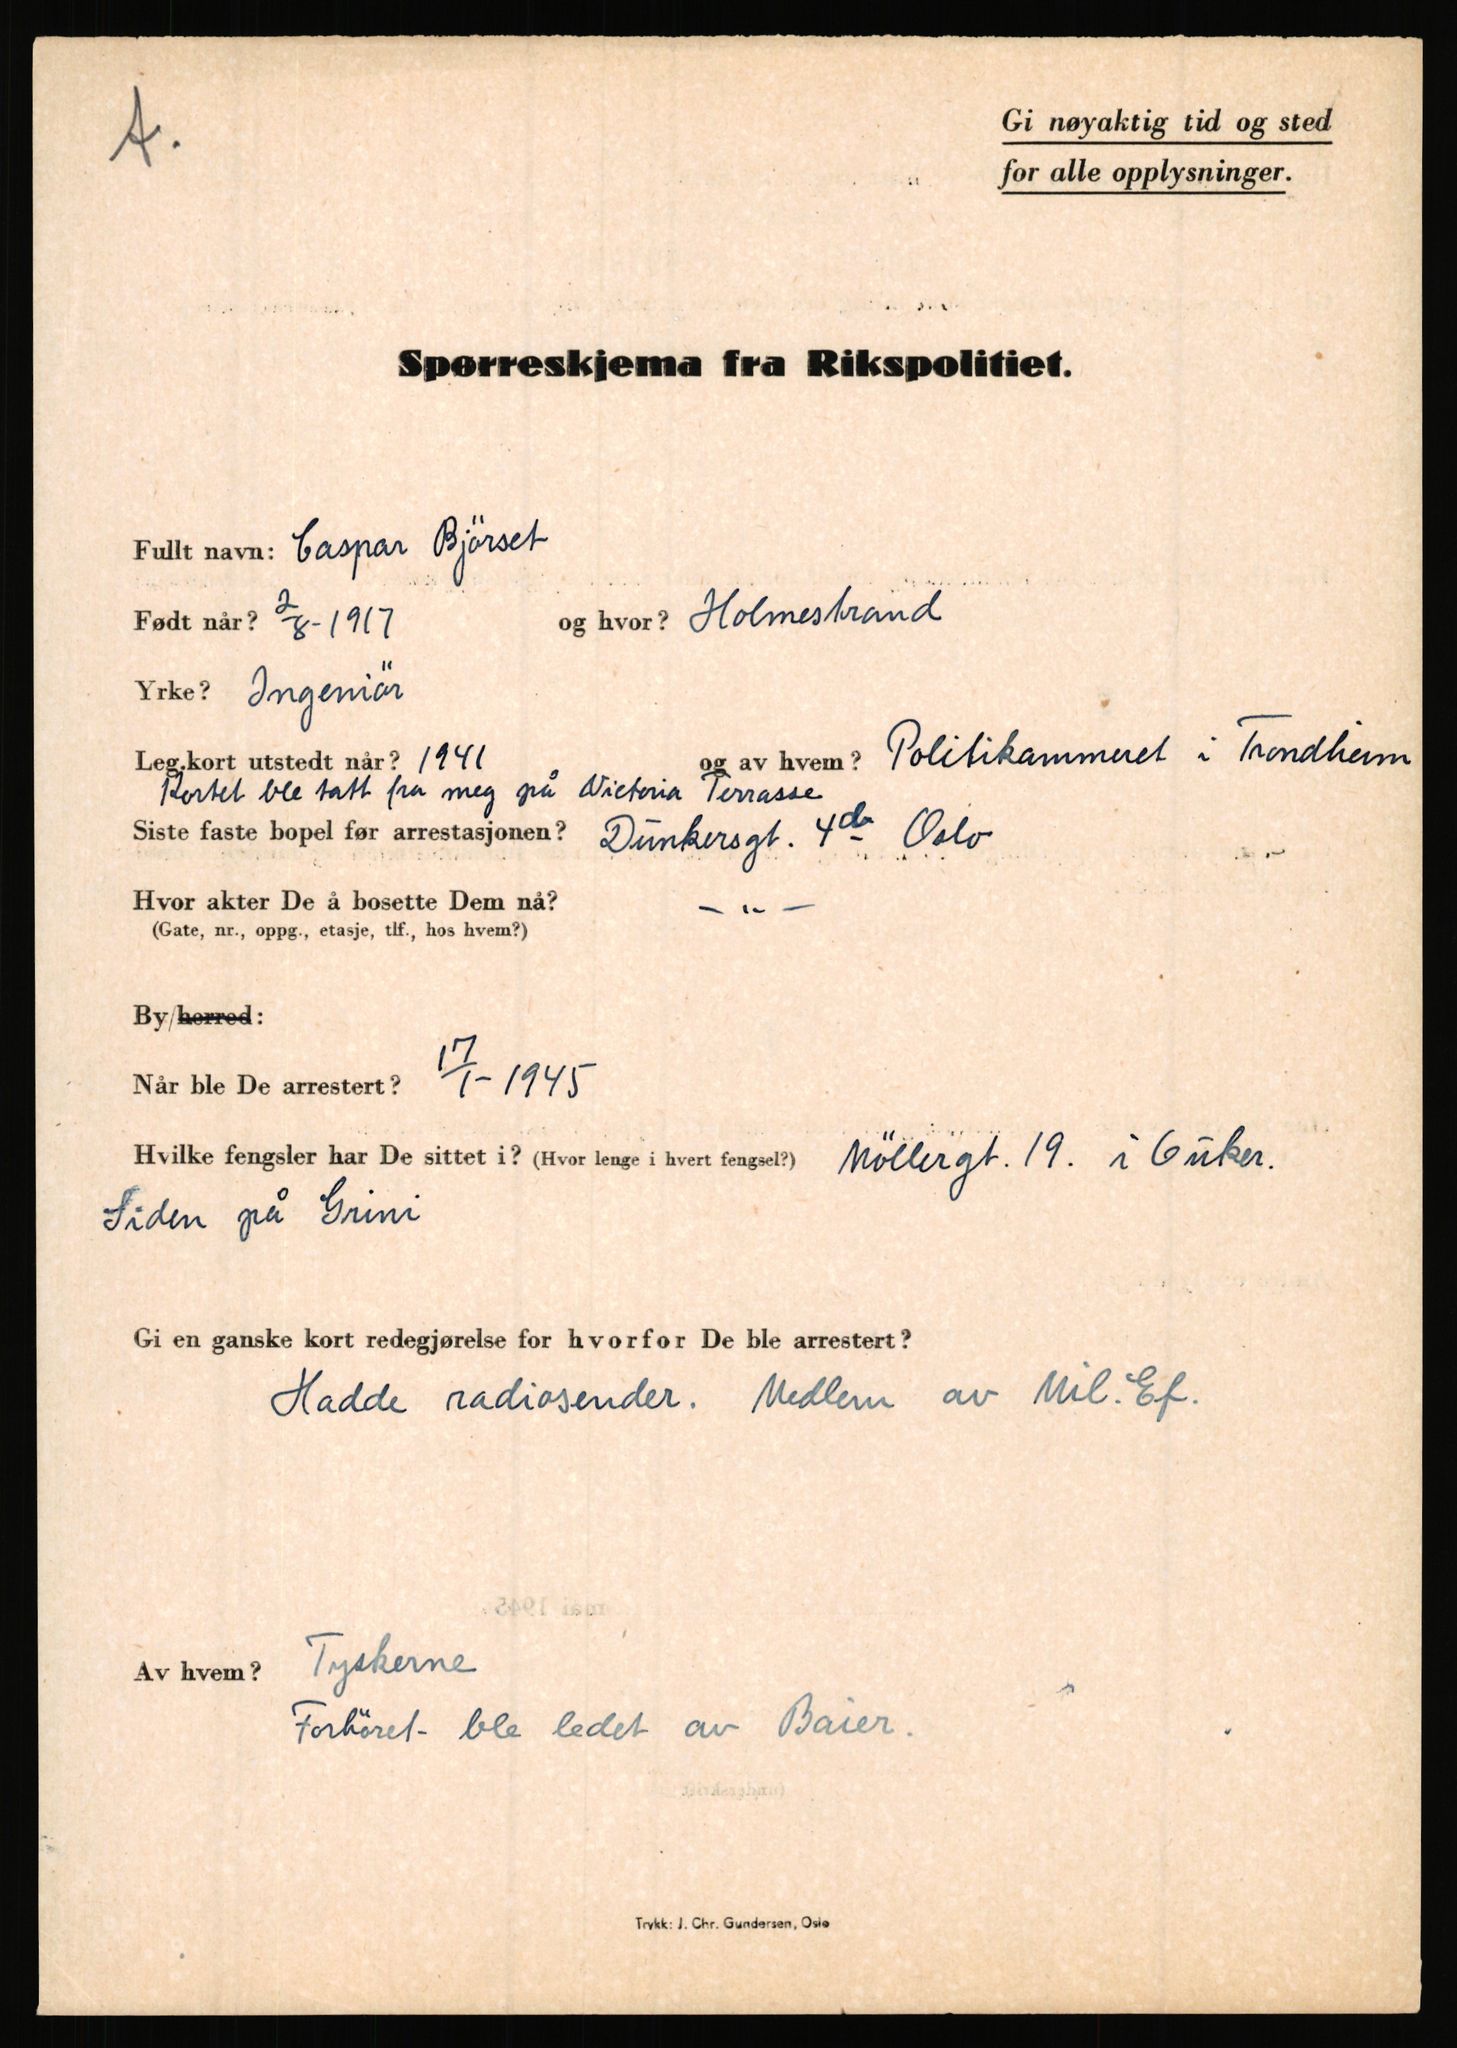 A.
Gi nøyaktig tid og sted
for alle opplysninger.
Spørreskjema fra Rikspolitiet.
Fullt navn: Caspar Björset
Født når? 2/8-1917 og hvor? Holmestrand
Yrke? Ingeniör
Leg.kort utstedt når? 1941 og av hvem? Politikammeret i Trondheim
Kortet ble tatt fra meg på Victoria Terrasse
Siste faste bopel før arrestasjonen? Dunkersgt. Oslo
Hvor akter De å bosette Dem nå? — " —
(Gate, nr., oppg., etasje, tlf., hos hvem?)
By/herred:
Når ble De arrestert? 17/1-1945
Hvilke fengsler har De sittet i? (Hvor lenge i hvert fengsel?) Möllergt. 19. i 6 uker.
Siden på Grini
Gi en ganske kort redegjørelse for hvorfor De ble arrestert?
Hadde radiosender. Medlem av Mil. Ef.
mai 1945.
Av hvem? Tyskerne
Forhöret ble ledet av Baier.
(underskrift)
Trykk: J. Chr. Gundersen, Oslo